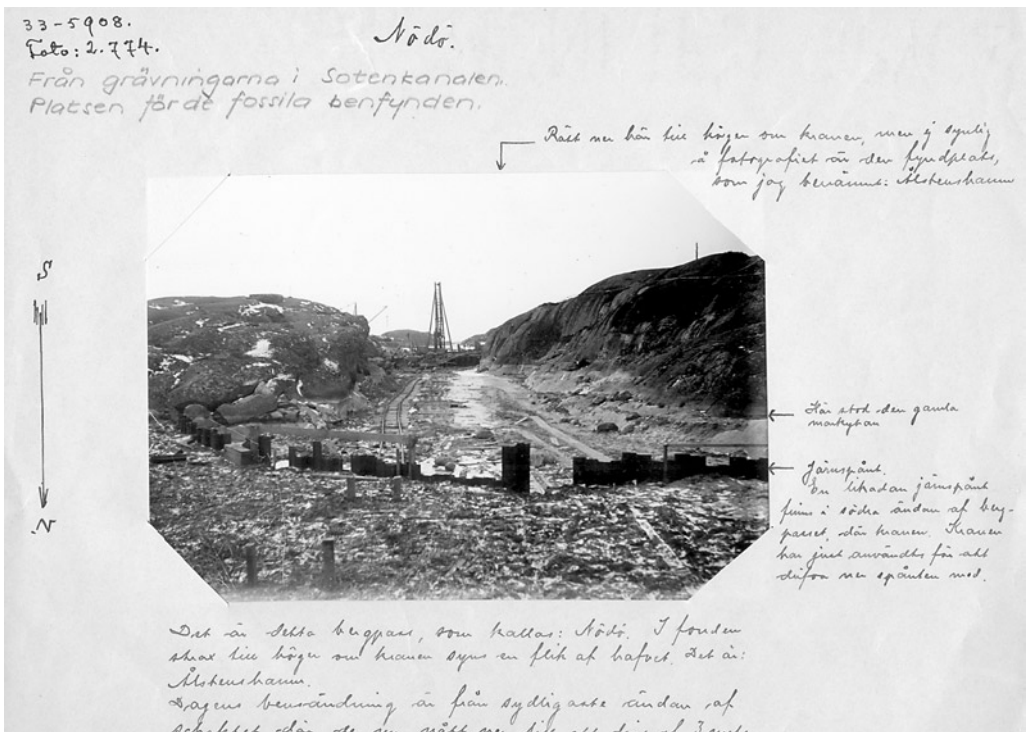 33-5908.
Foto: 2.774.
Nödö.
Från grävningarna i Sotenkanalen.
Platsen för de fossila benfynden.
Rätt ner här till höger om kranen, men ej synlig
å fotografiet är den fyndplats,
som jag benämnt: Ålstenshamn
S
Här stod den gamla
markytan
Järnspånt.
En likadan järnspånt
finns i södra ändan af berg-
passet, där kranen. Kranen
har just användts för att
drifva ner spånten med.
N
Det är detta bergpass, som kallas: Nödö. I fonden
strax till höger om kranen syns en flik af hafvet. Det är:
Ålstenshamn.
Dagens bensändning är från sydligaste ändan af